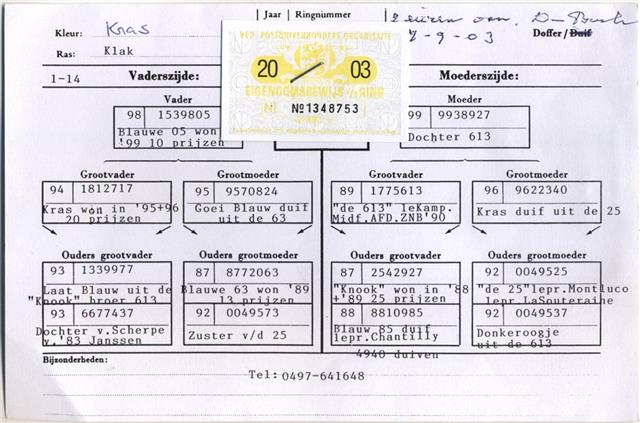 Kleur: Kras
Jaar Ringnummer
7-9-03
Ras: Klak
Doffer / Duif
NED. POSTDUIVENHOUDERS ORGANISATIE
20 03
EIGENDOMSBEWIJS v/d RING
Nº1348753
1-14
Vaderszijde:
Moederszijde:
Vader
98 1539805
Blauwe 05 won
'99 10 prijzen
Moeder
99 9938927
Dochter 613
Grootvader
94 1812717
Kras won in '95+96
20 prijzen
Grootmoeder
95 9570824
Goei Blauw duif
uit de 63
Grootvader
89 1775613
"de 613" 1eKamp.
Midf.AFD.ZNB'90
Grootmoeder
96 9622340
Kras duif uit de 25
Ouders grootvader
93 1339977
Laat Blauw uit de
"Knook" broer 613
93 6677437
Dochter v.Scherpe
v.'83 Janssen
Ouders grootmoeder
87 8772063
Blauwe 63 won '89
13 prijzen
92 0049573
Zuster v/d 25
Ouders grootvader
87 2542927
"Knook" won in '88
+'89 25 prijzen
88 8810985
Blauw 85 duif
1epr.Chantilly
4940 duiven
Ouders grootmoeder
92 0049525
"de 25"1epr.Montluco
1epr.LaSouteraine
92 0049537
Donkeroogje
uit de 613
Bijzonderheden:
Tel: 0497-641648